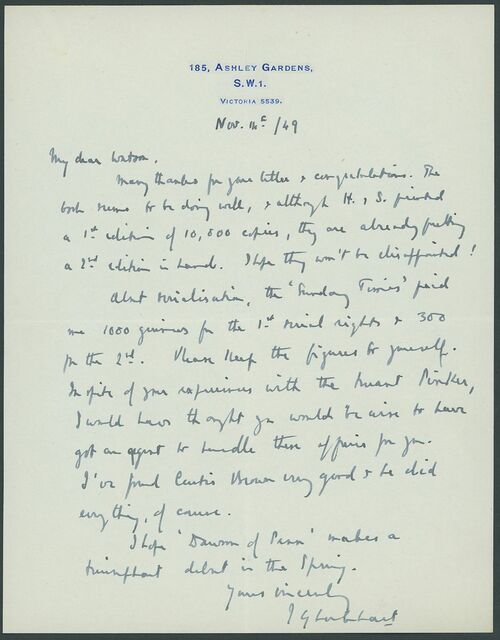 185, ASHLEY GARDENS,
S.W.1.
VICTORIA 5539.
Nov. 14th /49
My dear Watson,
Many thanks for your letter & congratulations. The
book seems to be doing well, & although H. & S. printed
a 1st edition of 10,000 copies, they are already putting
a 2nd edition in hand. I hope they won't be disappointed!
About serialisation, the 'Sunday Times' paid
me 1000 guineas for the 1st serial rights & 300
for the 2nd. Please keep the figures to yourself.
In spite of your experiences with the truant Pinker,
I would have thought you would be wise to have
got an agent to handle these affairs for you.
I've found Curtis Brown very good & he did
everything, of course.
I hope 'Dawson of Penn' makes a
triumphant debut in the Spring.
Yours sincerely
J G Lockhart